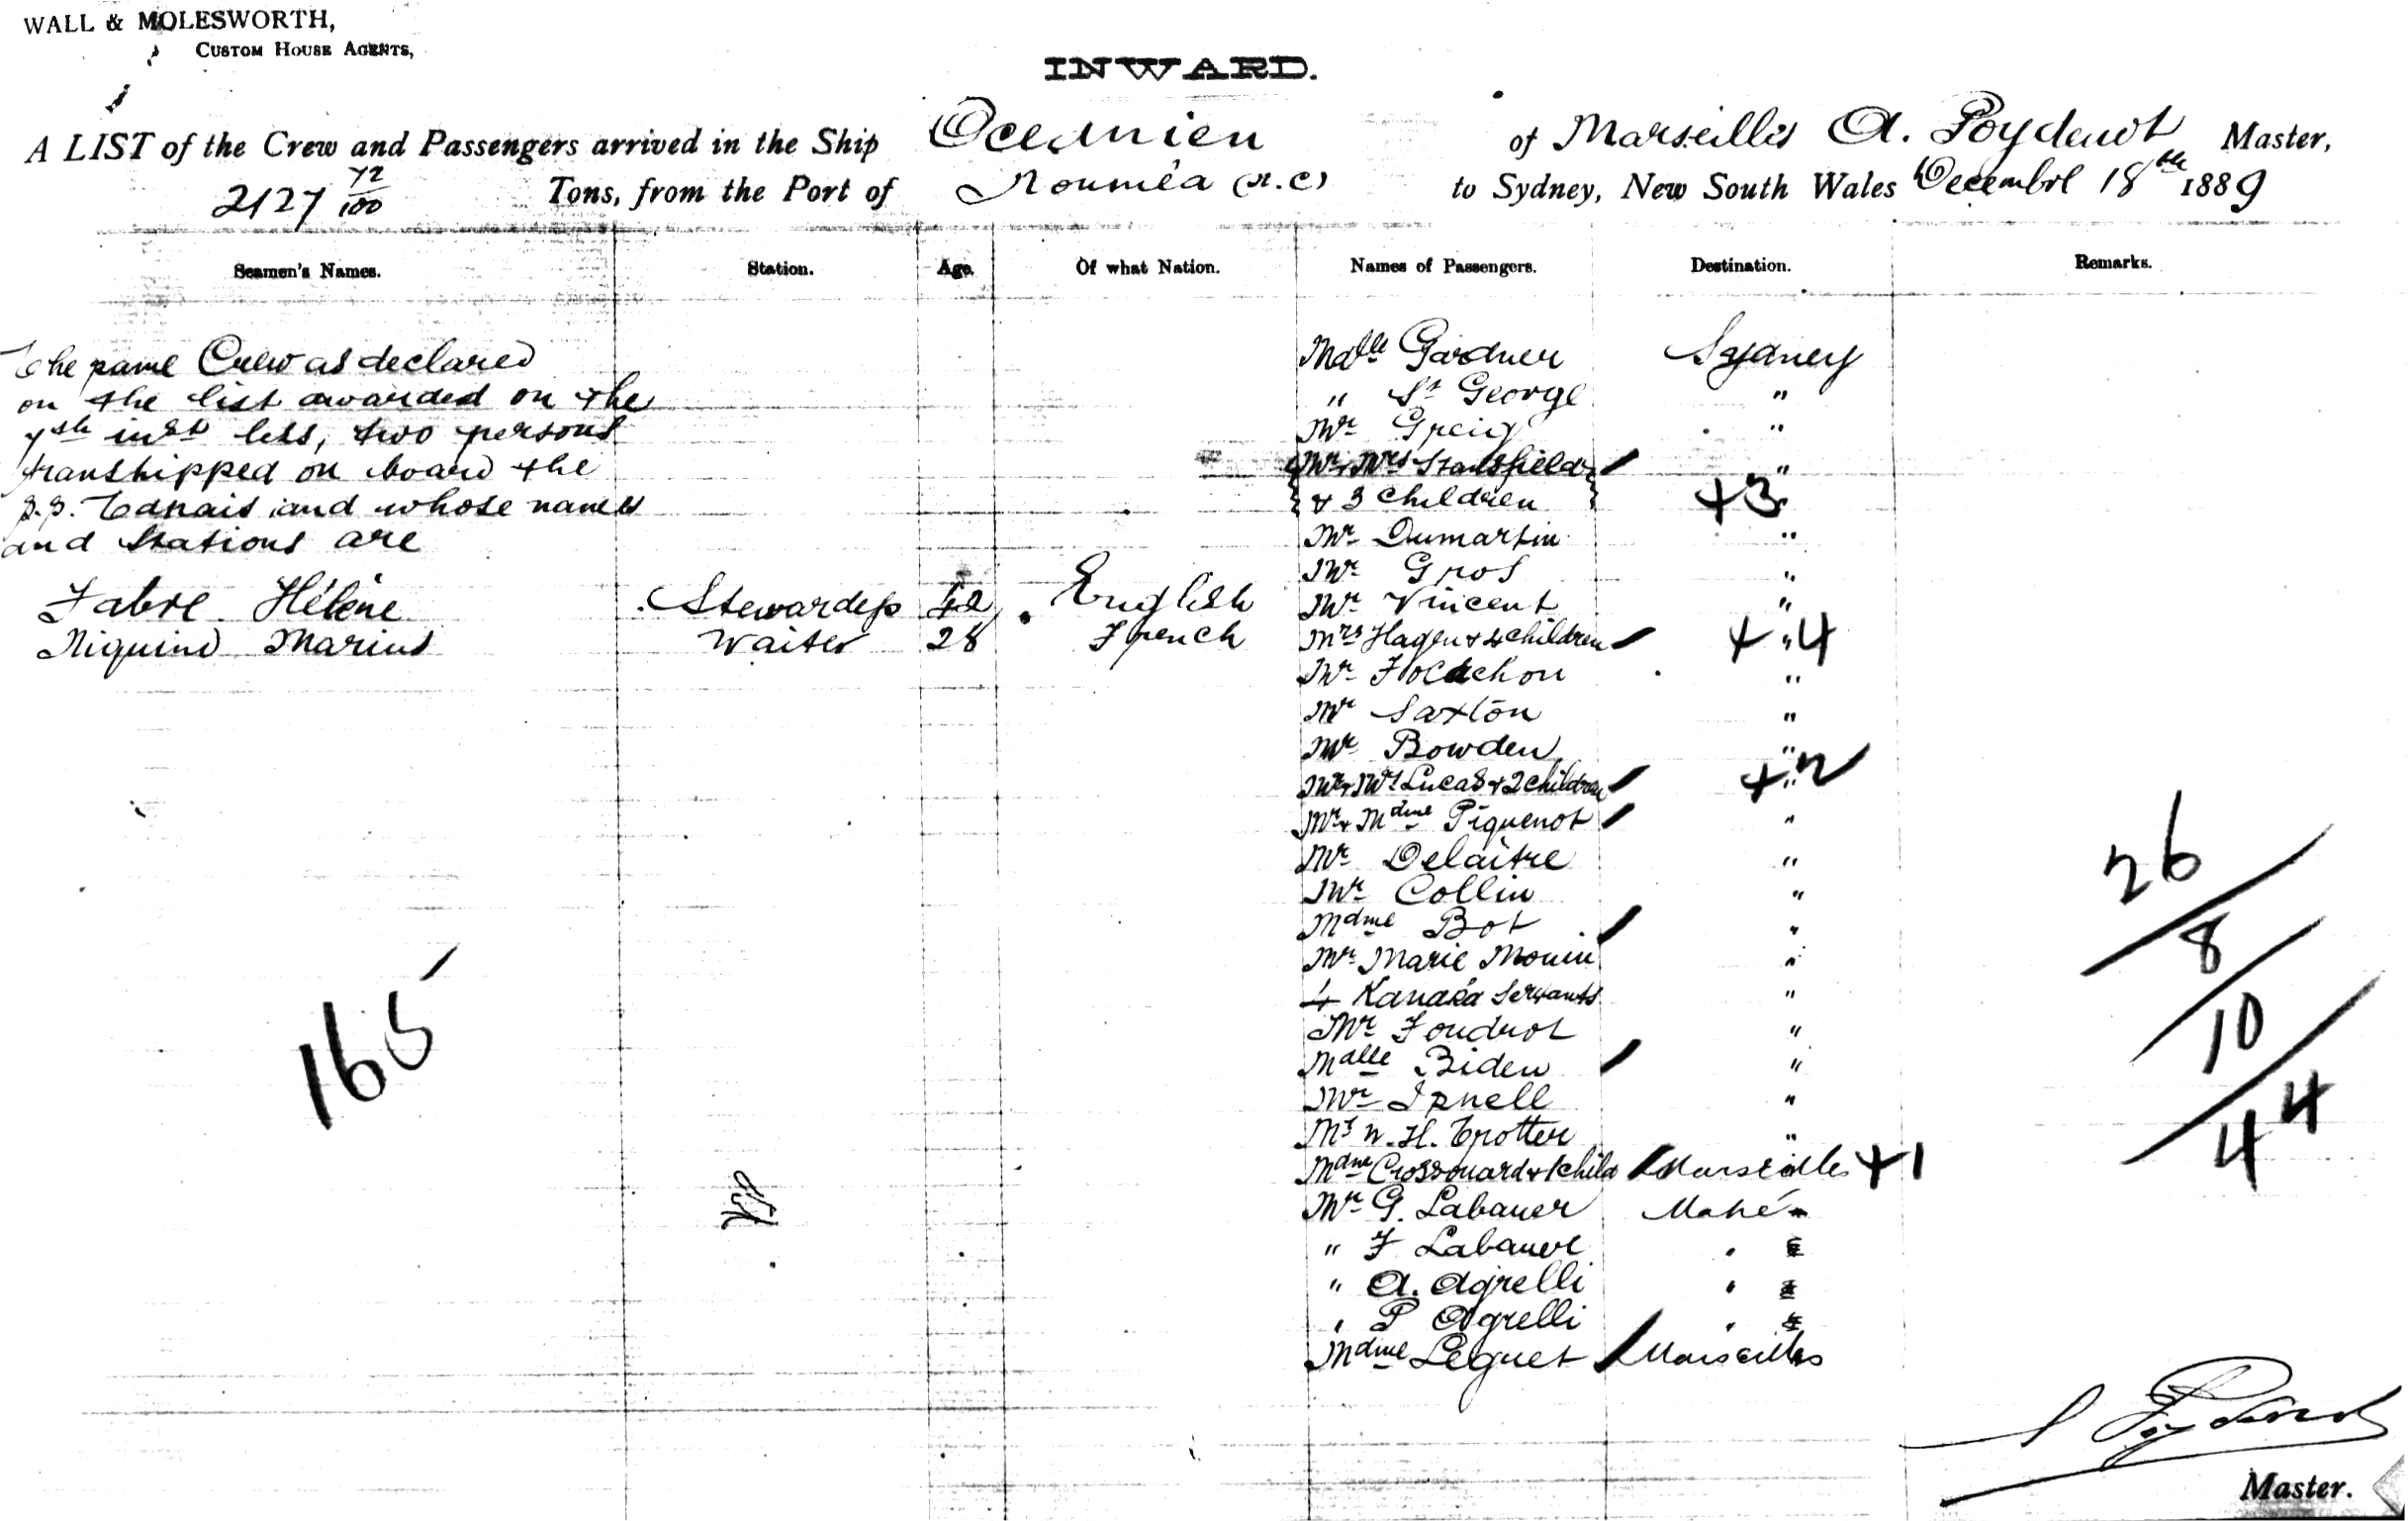 WALL & MOLESWORTH,
CUSTOM HOUSE AGENTS,
INWARD.
A LIST of the Crew and Passengers arrived in the Ship Oceanien of Marseilles A. Poydenot Master,
2127 72/100 Tons, from the Port of Nouméa (N.C) to Sydney, New South Wales Decembre 18th 1889
Seamen's Names. Station. Age. Of what Nation. Names of Passengers. Destination. Remarks.
The same Crew as declared
on the list awarded on the
7th inst less, two persons
transhipped on board the
S.S. Tanais and whose names
and Stations are
Fabre Hélène Stewardess 42 English
Niquind Marius Waiter 28 French
Mdlle Gardner Sydney
" St George "
Mr Greig "
Mr & Mrs Stansfield "
& 3 children +3 "
Mr Dumartin "
Mr Gros "
Mr Vincent "
Mrs Hagen & 4 children + " 4
Mr "
Mr Saxton "
Mr Bowden "
Mr & Mrs Lucas & 2 children + " 2
Mr & Mdme Piquenot "
Mr Delaitre "
Mr Collin "
Mdme Bot "
Mr Marie Mouin "
4 Kanaka Servants "
Mr Foudrot "
Mdlle Biden "
Mr "
Mr W. H. Trotter "
Mdme Crossouard & 1 child Marseilles +1
Mr G. Labauer Mahé
" F Labauer "
" A. Agrelli "
" P Agrelli "
Mdme Leguet Marseilles
165
26
8
10
44
A Poydenot
Master.